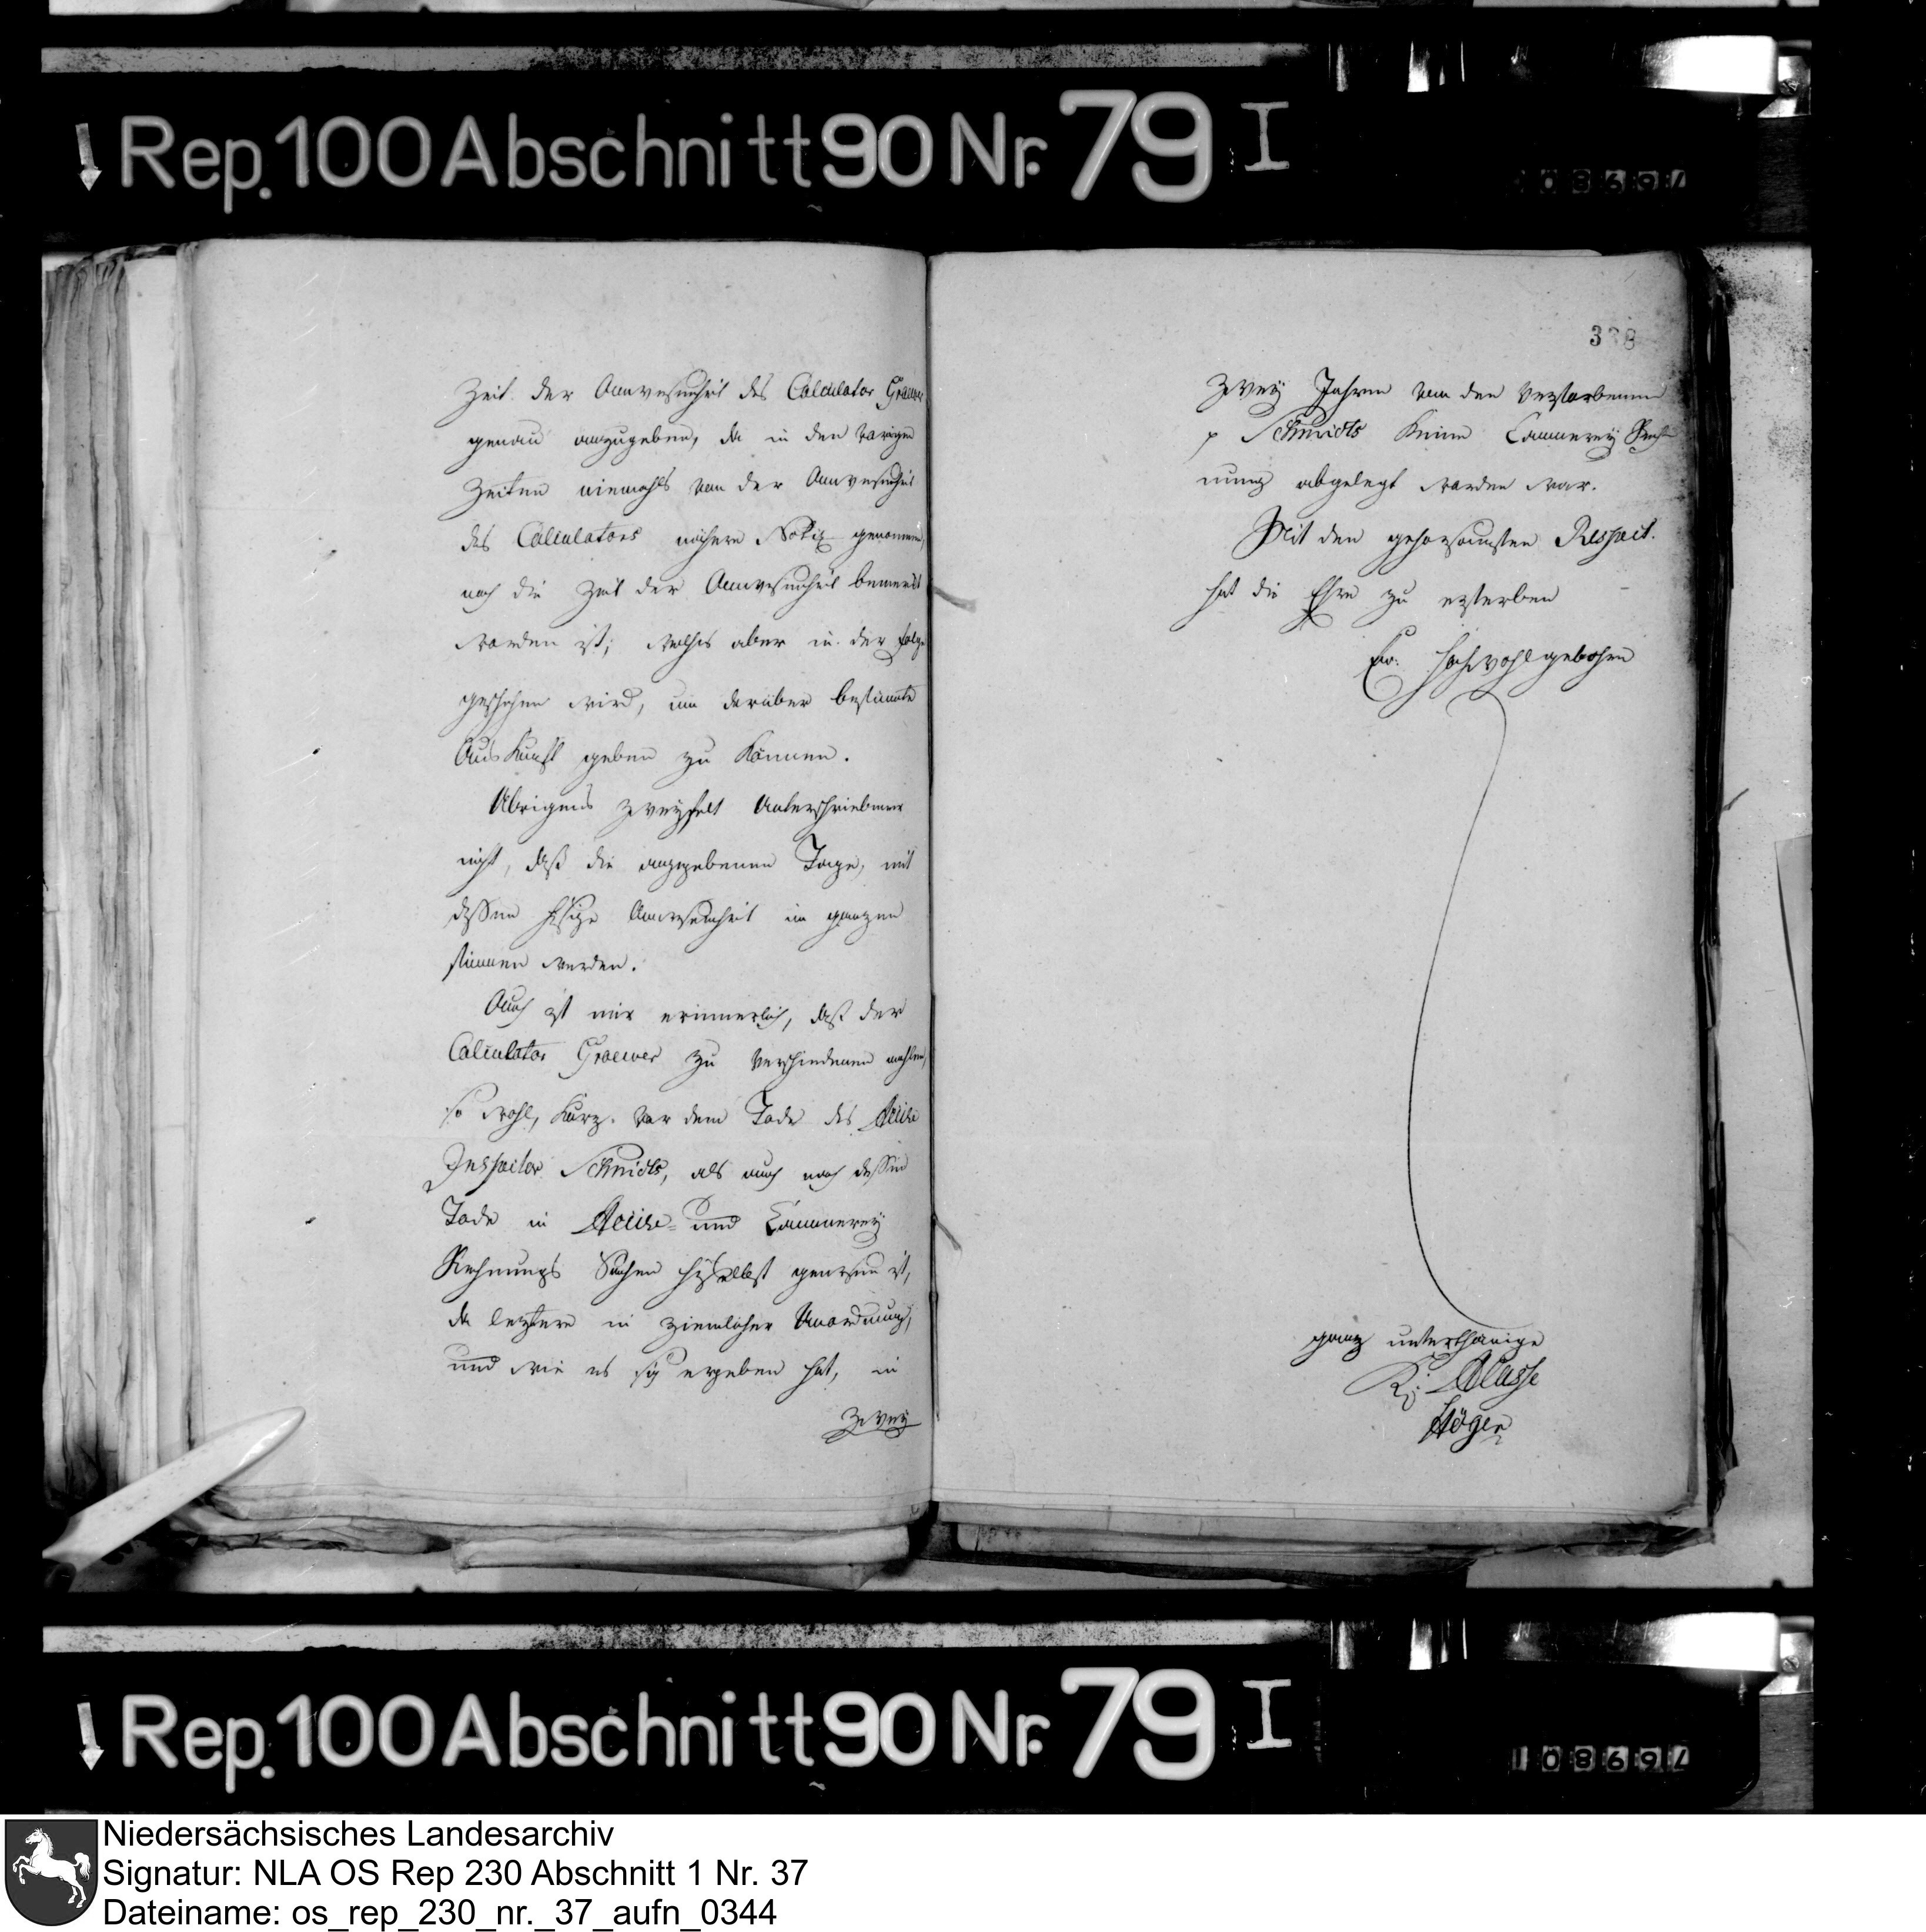 Rep. 100 Abschnitt 90 Nr. 79 I
10869
Zeit der Anwesenheit des Calculator Graewer
genau anzugeben, da in den vorigen
Zeiten niemahls von der Anwesenheit
des Calculators nähere Notiz genommen,
noch die Zeit der Anwesenheit bemerkt
worden ist; welches aber in der Folge
geschehen wird, um darüber bestimmte
Auskunft geben zu können.
Übrigens zweyfelt Unterschriebener
nicht, daß die angegebenen Tage, mit
dessen hiesige Anwesenheit im ganzen
stimmen werden.
Auch ist mir erinnerlich, daß der
Calculator Graewer zu verschiedenen mahlen,
so wohl, kurz vor dem Tode des Accise
Inspector Schmidts, als auch nach dessen
Tode in Accise- und Cämmerey
Rechnungs Sachen hieselbst gewesen ist,
da letztere in ziemlicher Unordnung,
und wie es sich ergeben hat, in
zwey
338
zwey Jahren von den verstorbenen
p Schmidts keine Cämmerey Rech-
nung abgelegt worden war.
Mit den gehorsamsten Respect
hat die Ehre zu ersterben
Ew: Hochwohlgebohren
ganz unterthänige
Höger
Rep. 100 Abschnitt 90 Nr. 79 I
10869
Niedersächsisches Landesarchiv
Signatur: NLA OS Rep 230 Abschnitt 1 Nr. 37
Dateiname: os_rep_230_nr._37_aufn_0344